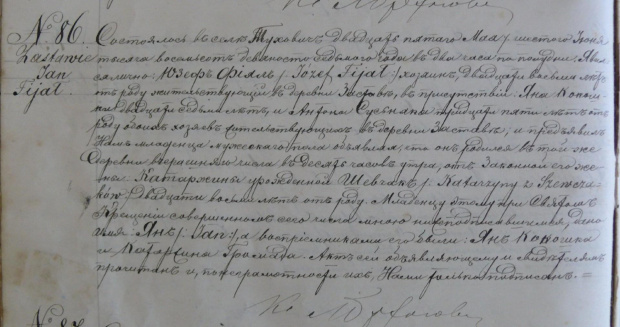 № 86.
Zastawie
Jan
Fijał
Состоялось въ селѣ Туховичъ двадцать пятаго Мая / шестого Іюня
тысяча восемьсотъ девяносто седьмого года въ два часа по полудни. Яви
лся лично Юзефъ Фіялъ /: Jozef Fijał :/ хозяинъ, двадцати восьми лѣтъ
отъ роду жительствующій въ деревни Заставъ, въ присутствіи Яна
двадцати седьми лѣтъ, и Антона тридцати пяти лѣтъ отъ
роду обоихъ хозяевъ жительствующихъ въ деревни Заставѣ, и предъявилъ
Намъ младенца мужескаго пола объявляя, что онъ родился въ той же
деревни вчерашняго числа въ десять часовъ утра, отъ законной его же
ны Катаржины урожденной Шевчакъ /: Katarzyny z Szewcza
ków :/ двадцати восьми лѣтъ отъ роду. Младенцу этому при Святомъ
Крещеніи совершенномъ сего числа много нижеподписавшимся, дано
имя Янъ /: Jan :/, а воспріемниками его были: Янъ Кокошка
и Катаржина Громада. Актъ сей объявляющему и свидѣтелямъ
прочитанъ и, по неграмотности ихъ, Нами только подписанъ. =